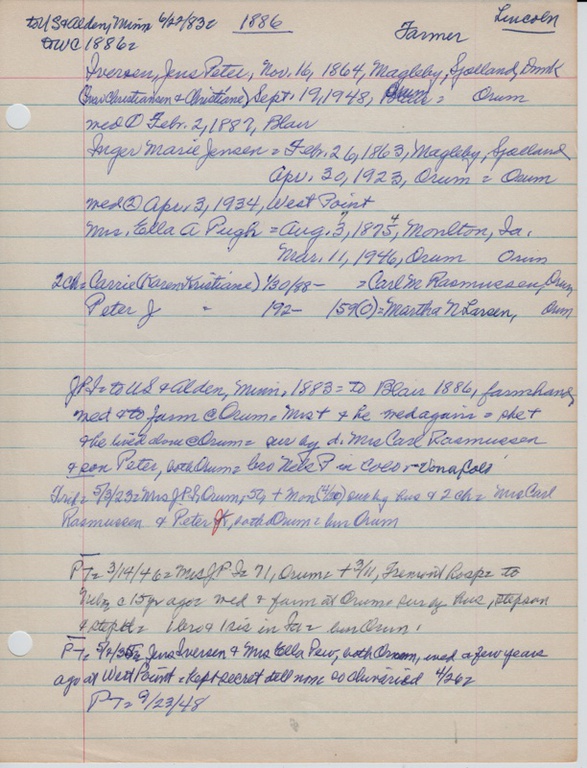 to US & Alden, Minn 6/22/83= 1886 Lincoln
to WC 1886= Farmer
Iversen, Jens Peter, Nov. 16, 1864, Magleby, Sjolland, Dmk
Christiansen & Christiane) Sept. 19, 1948, Orum = Orum
med ① Febr. 2, 1887, Blair
Inger Marie Jensen = Febr. 26, 1863, Magleby, Sjoelland
Apr. 30, 1923, Orum = Orum
med ② Apr. 3, 1934, West Point
Mrs. Ella A Pugh = Aug. 3, 1875, Moulton, Ia.
Mar. 11, 1946, Orum Orum
2ch = Carrie (Karen Kristiane) 1/30/88 - = Carl M Rasmussen, Orum
Peter J " 192- 159(c) = Martha N Larsen, Orum
JPI = to US & Alden, Minn, 1883 = to Blair 1886, farmhand,
med & to farm c Orum = Mrs + & he med again = she +
& he lived alone c Orum = sur by d. Mrs Carl Rasmussen
& son Peter, both Orum = bro Nels P in Colo
5/3/23 = Mrs J.P.I., Orum, + Mon (4/30) sur by hus & 2 ch = Mrs Carl
Rasmussen & Peter Jr, both Orum = bur Orum
PT = 3/14/46 = Mrs J P I = 71, Orum = + 3/11, Fremont Hosp = to
c 15 yr ago = med & farm at Orum = sur by hus, stepson
& = bro & 1 sis in Ia = bur Orum.
PT = Jens Iversen & Mrs Ella both Orum, med a few years
ago at West Point = kept secret till now 4/26=
PT = 9/23/48